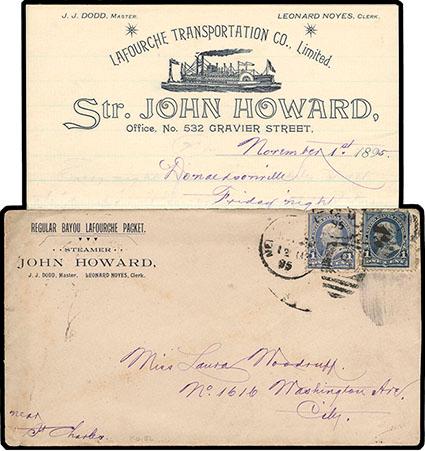 J. J. DODD, MASTER.
LEONARD NOYES, CLERK.
LAFOURCHE TRANSPORTATION CO., Limited.
Str. JOHN HOWARD,
Office, No. 532 GRAVIER STREET.
November 1st 1895
Donaldsonville
Friday night
REGULAR BAYOU LAFOURCHE PACKET.
STEAMER
JOHN HOWARD,
J. J. DODD, Master. LEONARD NOYES, Clerk.
95
1 1
Miss Laura Woodruff.
No. 1616 Washington Ave,
City.
near
St Charles